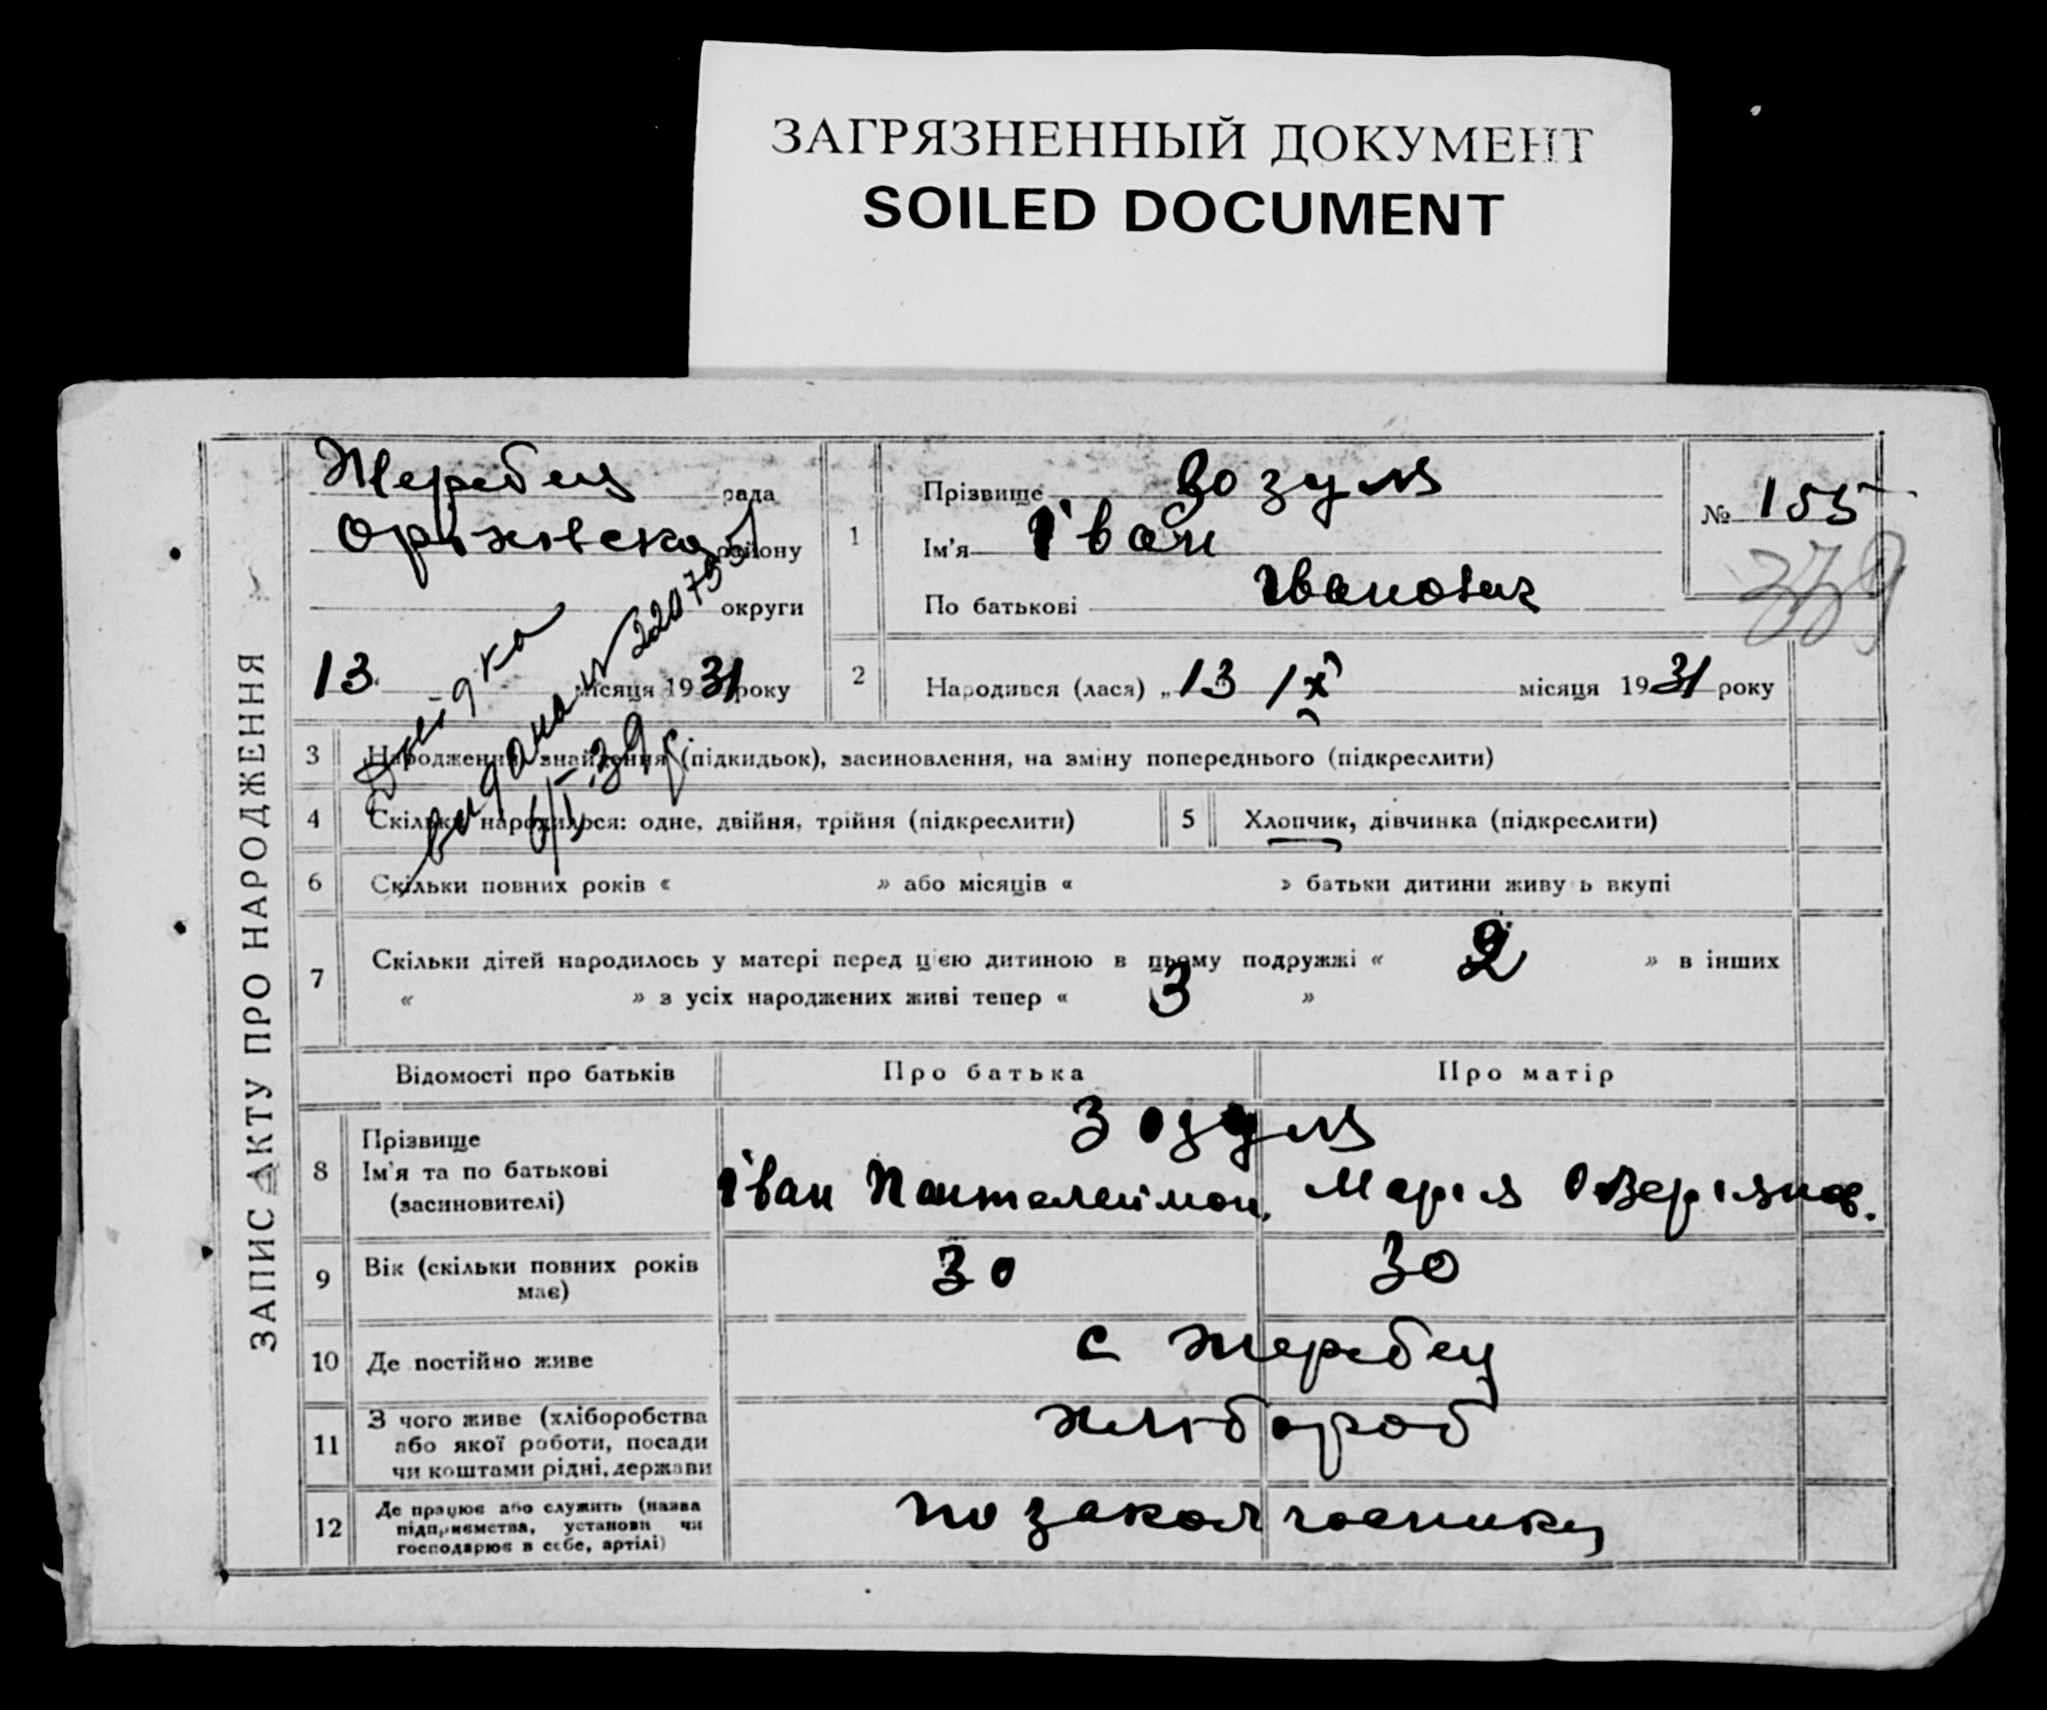 ЗАГРЯЗНЕННЫЙ ДОКУМЕНТ
SOILED DOCUMENT
ЗАПИС АКТУ ПРО НАРОДЖЕННЯ
Жеребец рада
Оріхівська району
округи
13 місяця 1931 року
видана 220795
6/I-39 р.
1 Прізвище Зозуля
Ім'я Іван
По батькові Іванович
№ 155
339
2 Народився (лася) „13 IX місяця 1931 року
3 Народження, знайдення (підкидьок), засиновлення, на зміну попереднього (підкреслити)
4 Скільки народилося: одне, двійня, трійня (підкреслити) 5 Хлопчик, дівчинка (підкреслити)
6 Скільки повних років « » або місяців « » батьки дитини живуть вкупі
7 Скільки дітей народилось у матері перед цією дитиною в цьому подружжі « 2 » в інших
« » з усіх народжених живі тепер « 3 »
Відомості про батьків Про батька Про матір
8 Прізвище Зозуля
Ім'я та по батькові
(засиновителі) Іван Пантелеймон. Марія Оверіянов.
9 Вік (скільки повних років
має) 30 30
10 Де постійно живе с Жеребец
11 З чого живе (хліборобства
або якої роботи, посади
чи коштами рідні, держави хлібороб
12 Де працює або служить (назва
підприємства, установи чи
господарює в себе, артілі)